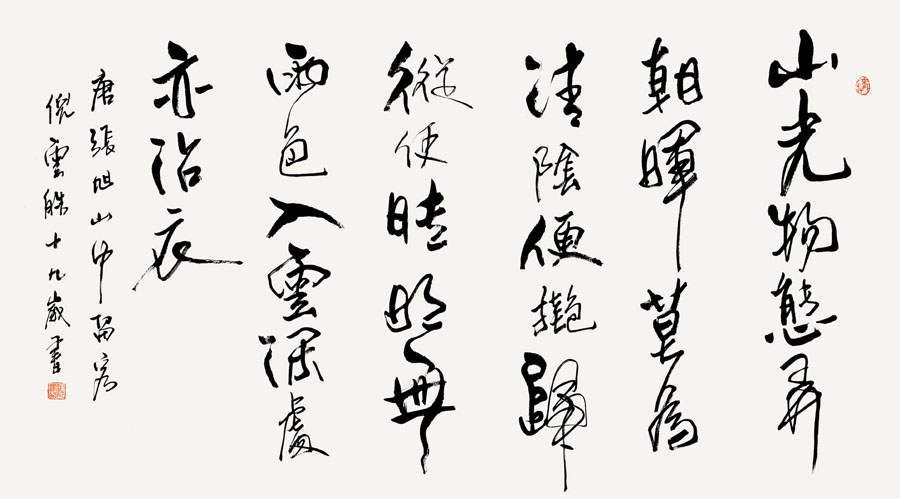 山光物態弄
朝暉莫為
清陰便擬歸
縱使晴明無
雨色入雲深處
亦沾衣
唐張旭山中留客
倪雲十九歲書